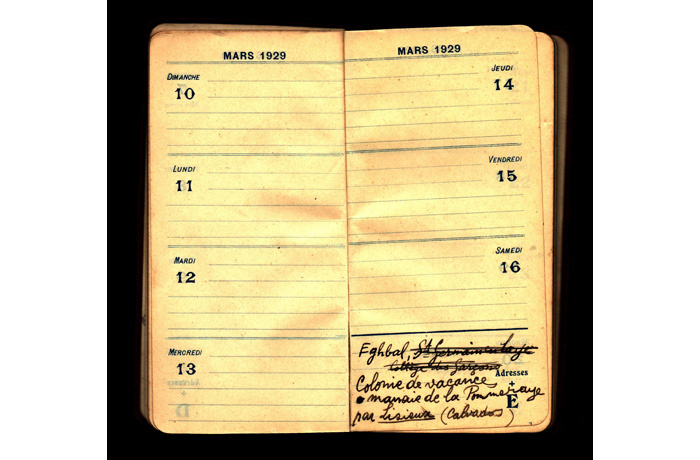 MARS 1929
DIMANCHE
10
LUNDI
11
MARDI
12
MERCREDI
13
Adresses
+
D
MARS 1929
JEUDI
14
VENDREDI
15
SAMEDI
16
Eghbal, St Germain en Laye
Collège des Garçons
Adresses
+
E
Colonie de vacances
de la Pommeraye
par Lisieux (Calvados)